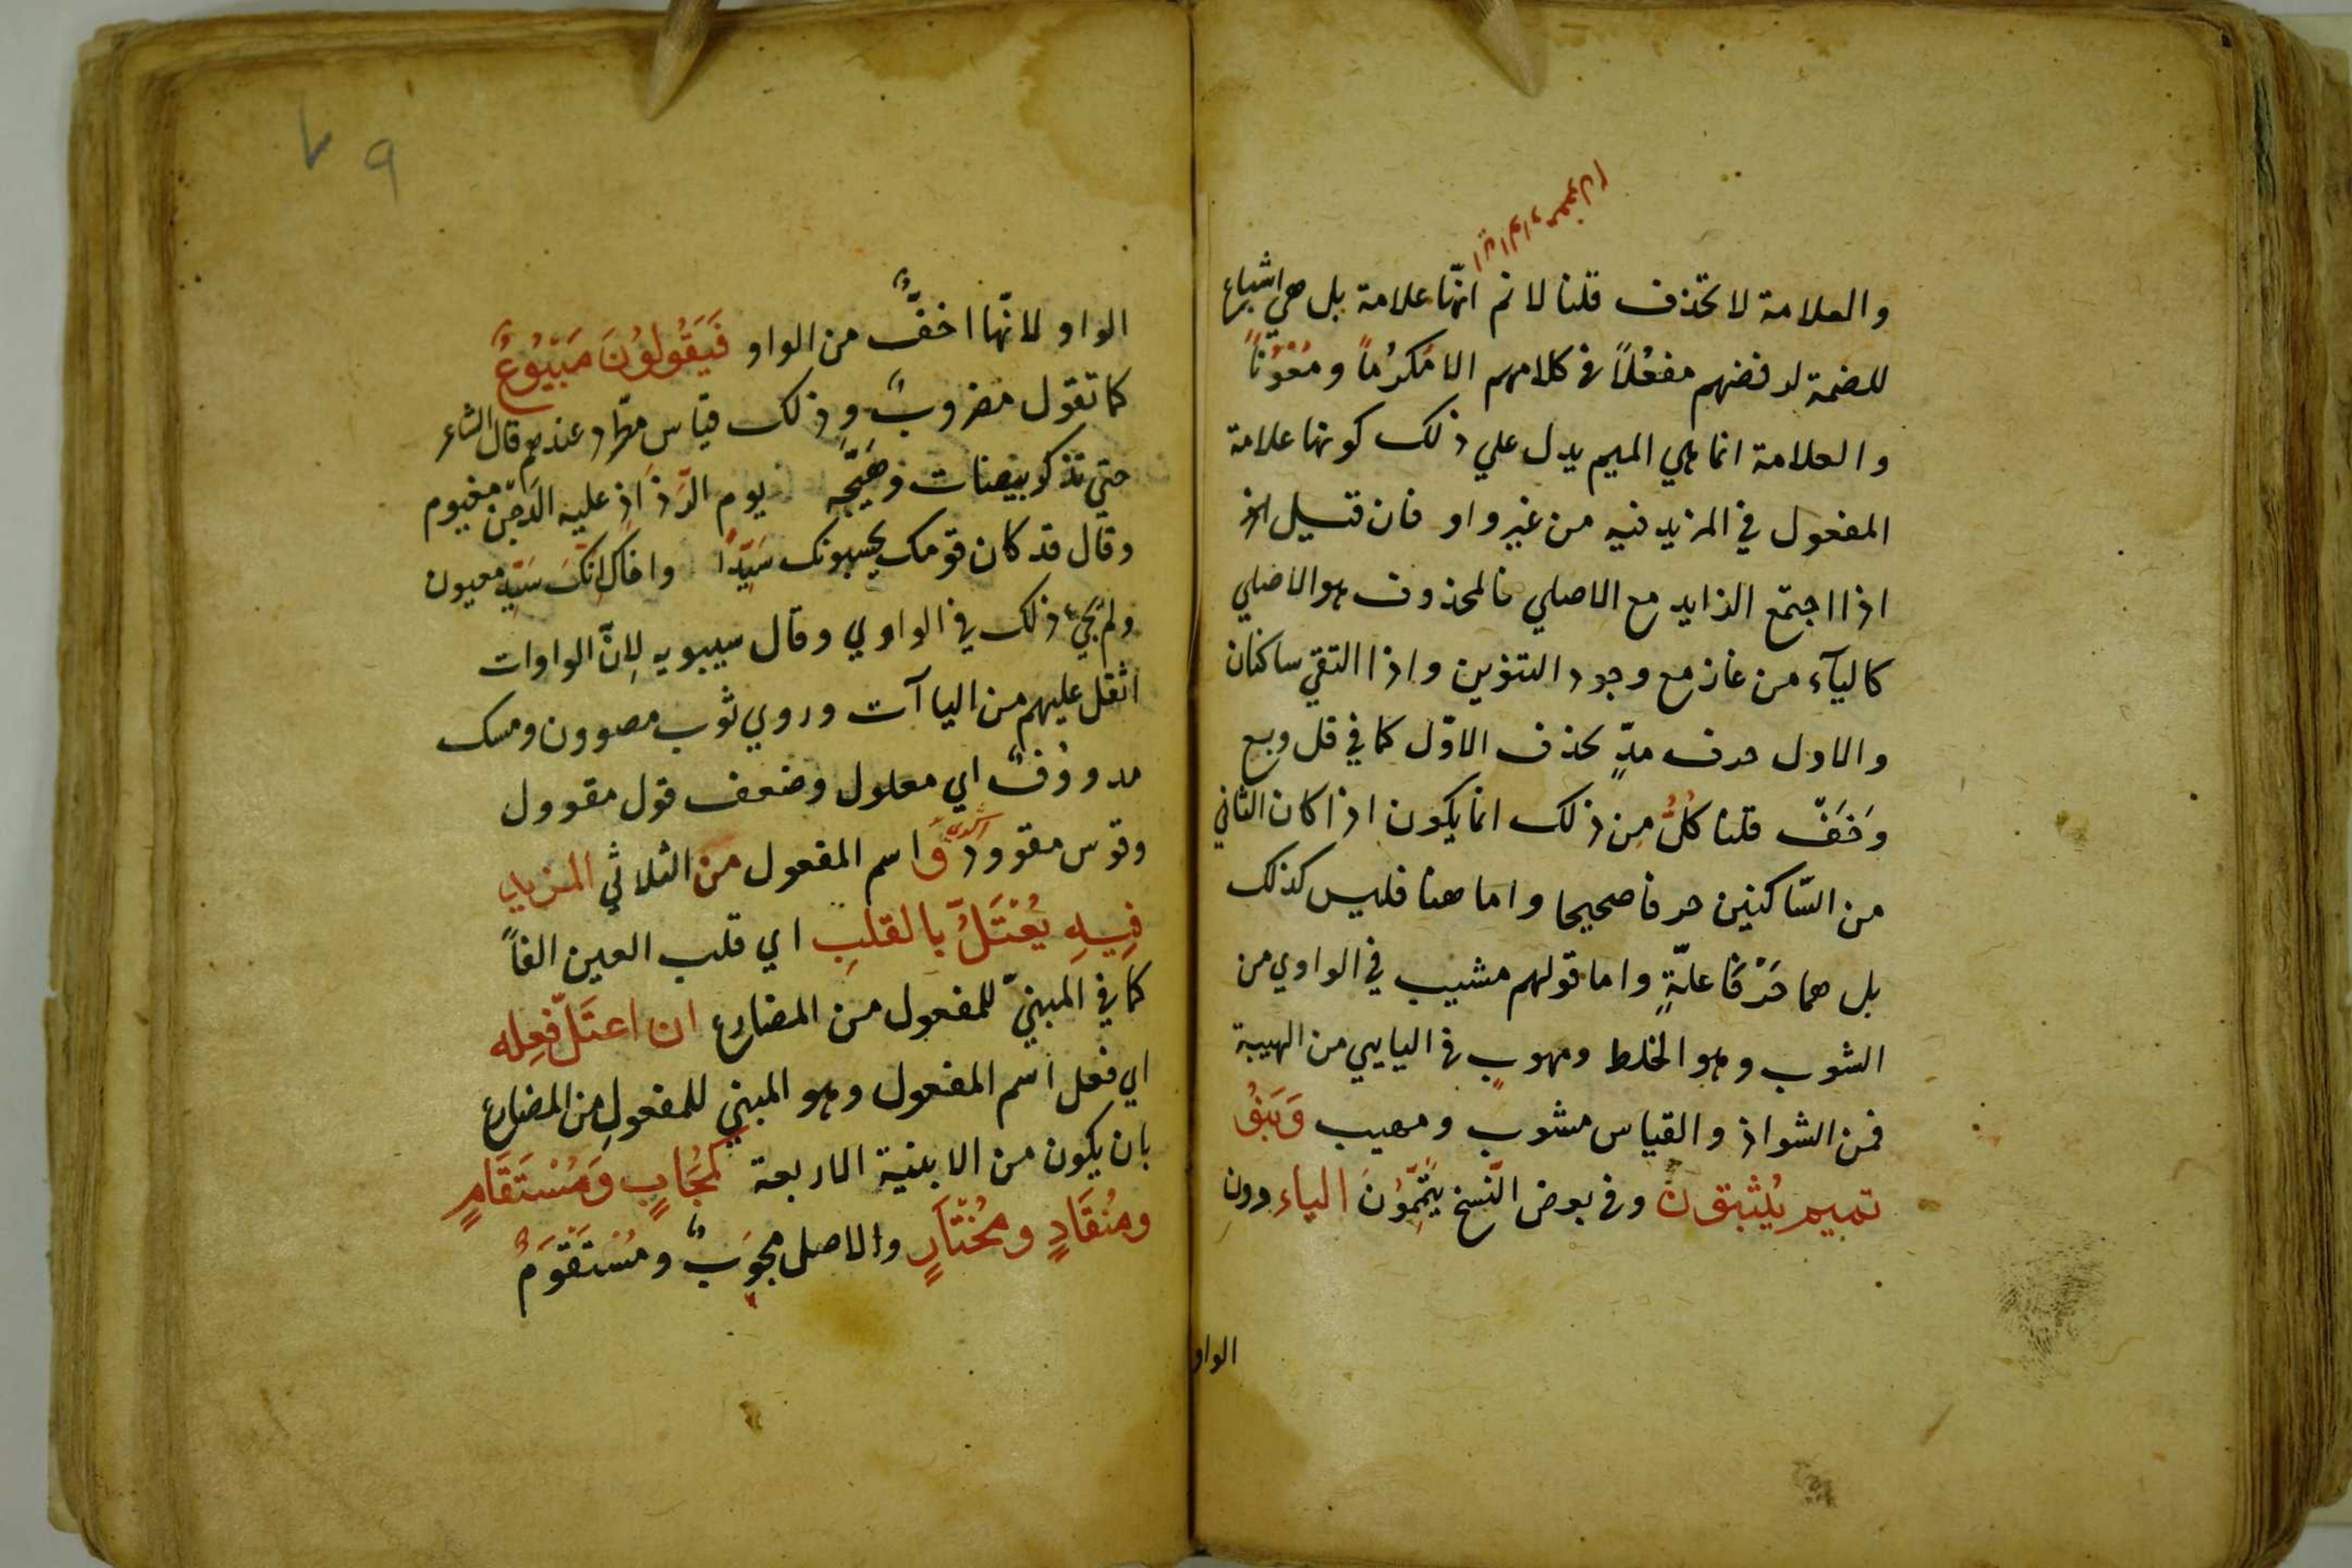 والعلامة لا تحذف قلنا لا نم انّها علامة بل هي اشباع
للضمة لرفضهم مفعُلاً في كلامهم الا مَكرُماً ومَعْوُناً
والعلامة انما هي الميم يدل علي ذلك كونها علامة
المفعول في المزيد فيه من غير واو فان قيل
اذا اجتمع الزايد مع الاصلي فالمحذوف هو الاصلي
كالياء من غاز مع وجود التنوين واذا التقي ساكنان
والاول حرف مدٍّ يحذف الاوّل كما في قل وبع
وَخَفّ قلنا كُلٌّ مِن ذلك انما يكون اذا كان الثاني
من السّاكنين حرفا صحيحا واما هنا فليس كذلك
بل هما حَرْفَا علّةٍ واما قولهم مشيب في الواوي من
الشوب وهو الخلط ومهوب في اليايي من الهيبة
فمن الشواذ والقياس مشوب ومهيب وَبَنُو
تميم يُثبتون وفي بعض النّسخ يُتَمِّمُوْنَ الياء دون
الواو
الواو لانّها اخفُّ من الواو فَيَقُولُوْنَ مَبْيُوْعٌ
كما تقول مضروبٌ وذلك قياس مطّرد عندهم قال الشاعر
حتي تذكر بيضات وهَيَّجَه يوم الرَّذاذِ عليه الدَّجنُ مغيوم
وقال قد كان قومك يحسبونك سَيِّدًا واخال انّكَ سَيِّد معيون
ولم يجيء ذلك في الواوي وقال سيبويه لِانّ الواوات
اثقل عليهم من الياآت وروي ثوب مصوون ومسك
مدووُفٌ اي معلول وضعف قول مقوول
وقوس مقوودٌ وَاسم المفعول من الثلاثي المزيد
فِيهِ يُعْتَلُّ بالقلبِ اي قلب العين الفاً
كما في المبنيّ للمفعول من المضارع ان اعتَلّ فِعله
اي فعل اسم المفعول وهو المبني للمفعولِ من المضارع
بان يكون من الابنية الاربعة كَمُجَابٍ وَمُسْتَقَامٍ
ومُنْقَادٍ ومُخْتَارٍ والاصل مجوَبٌ ومُسْتَقْوَمٌ